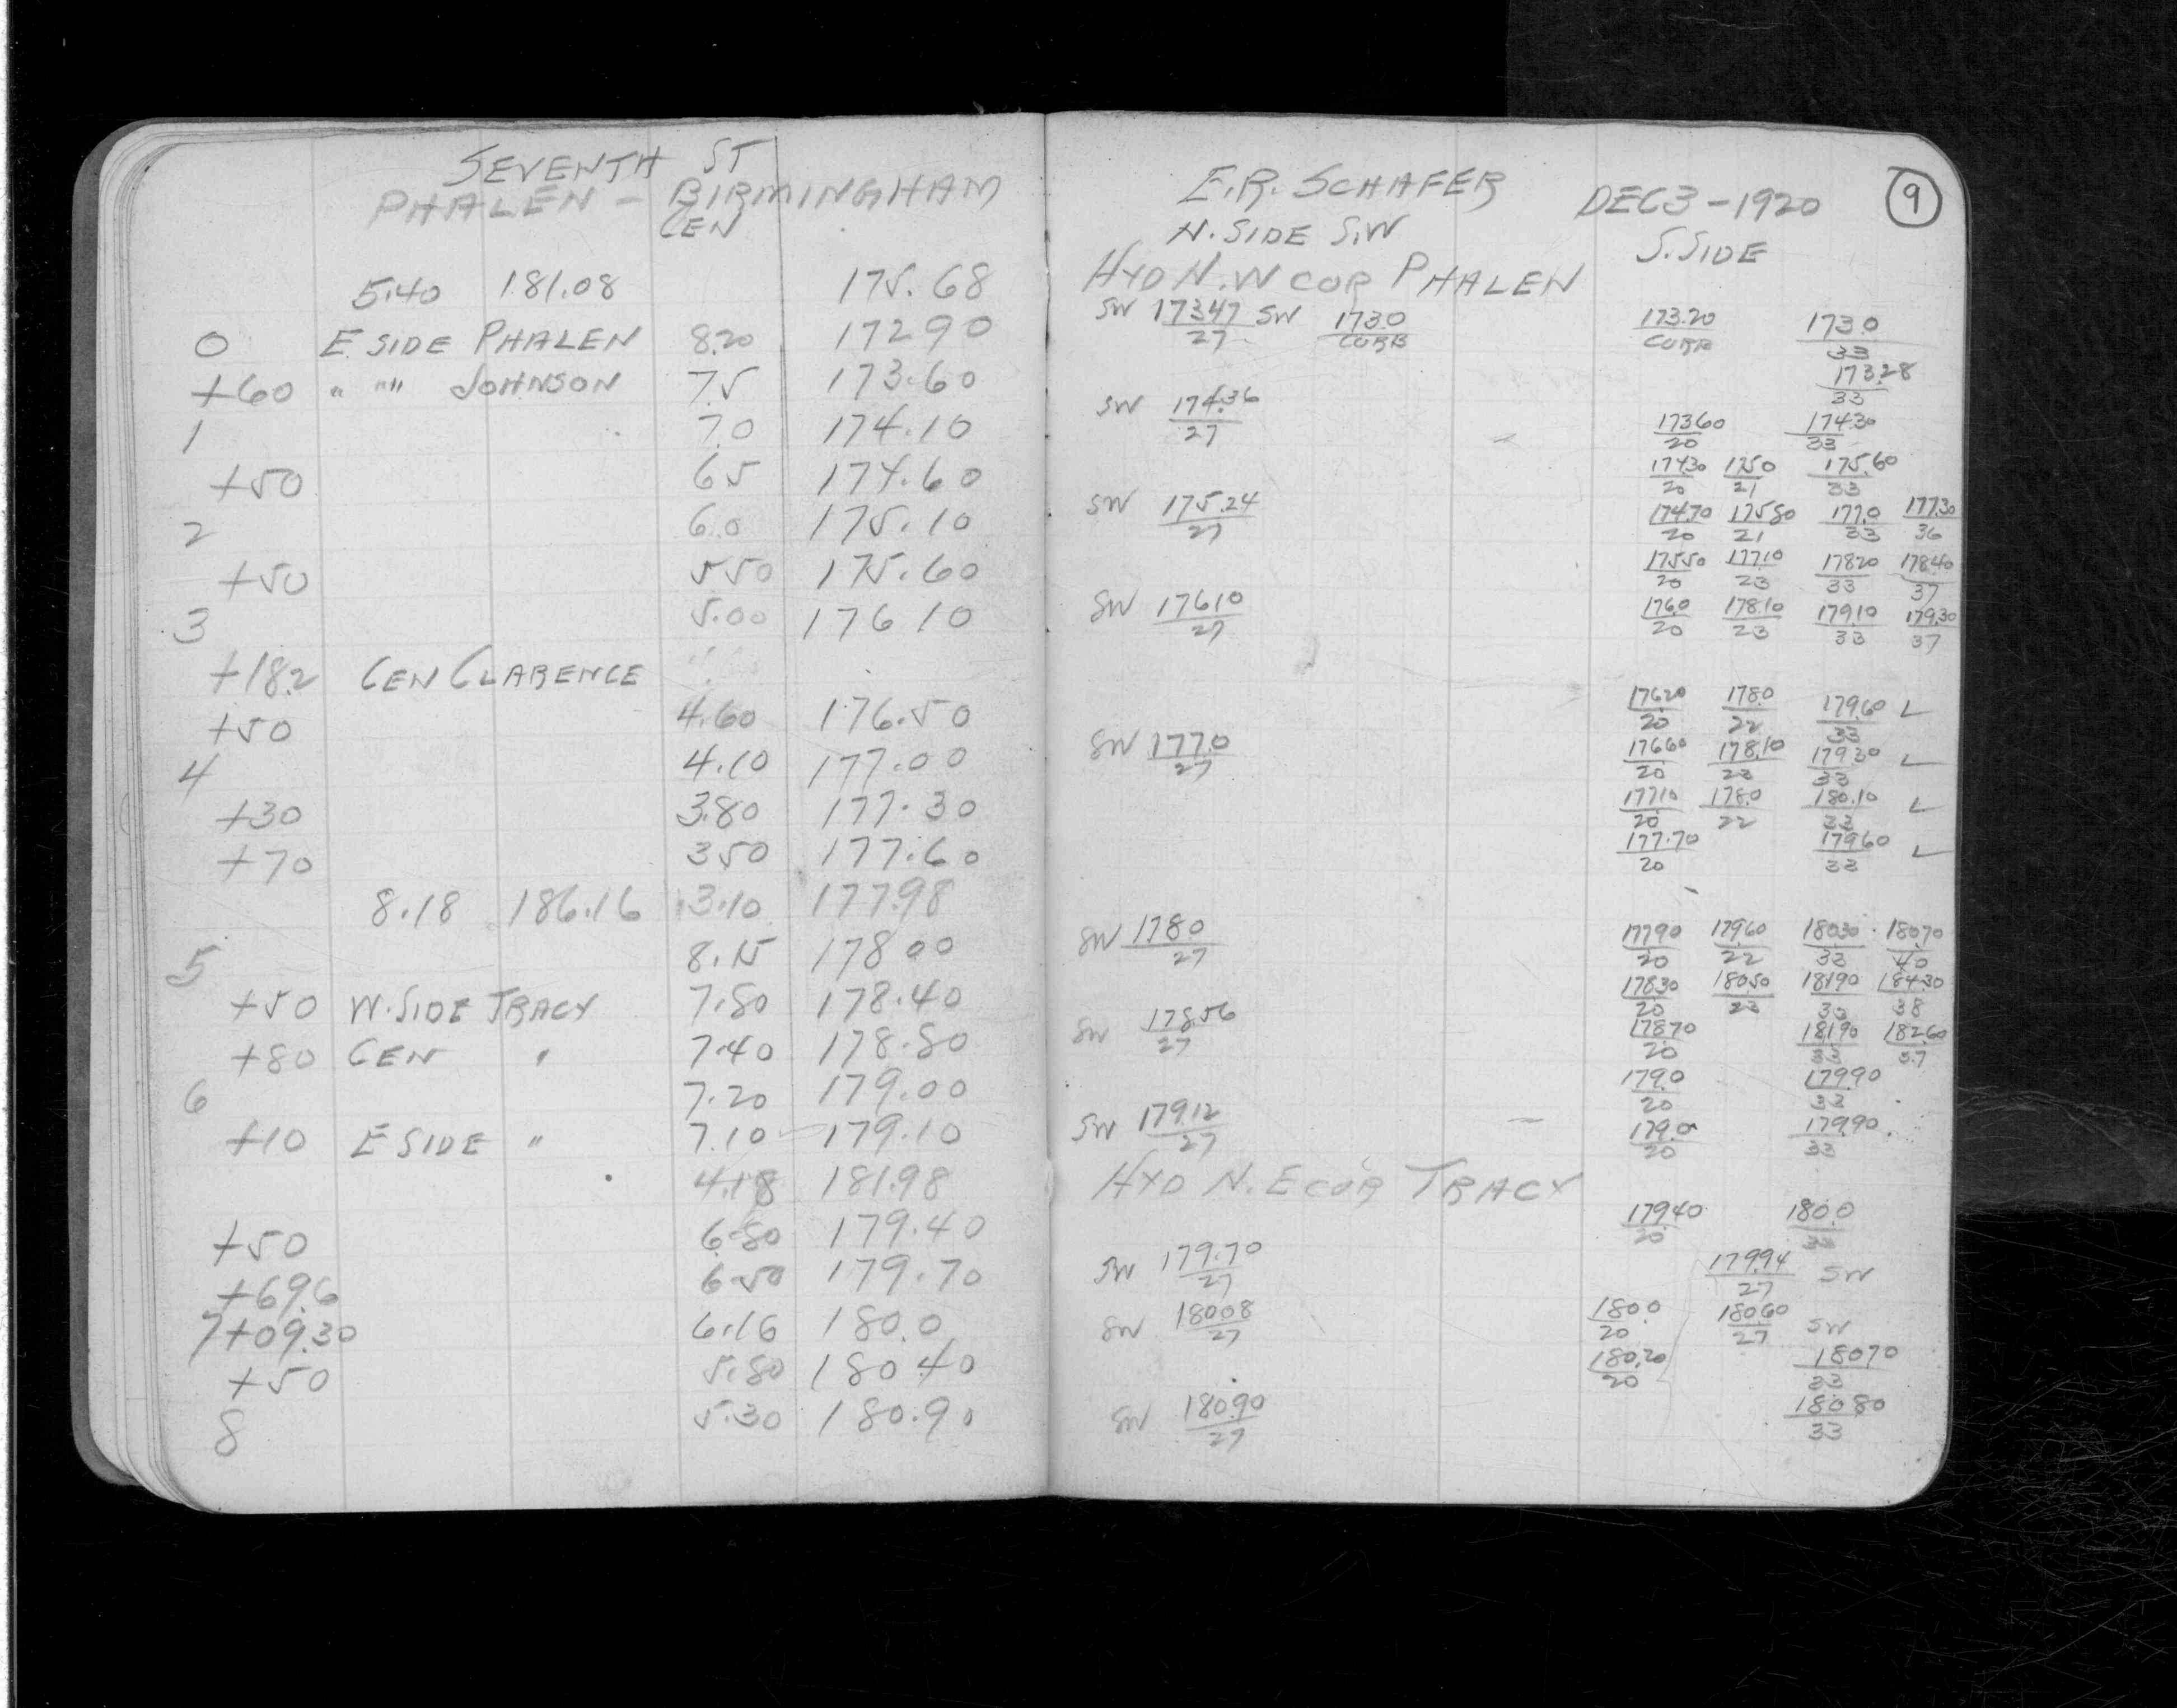 SEVENTH ST
PHALEN - BIRMINGHAM
CEN
5.40 181.08 175.68
0 E. SIDE PHALEN 8.20 172 90
+60 " "" JOHNSON 7.5 173.60
1 7.0 174.10
+50 6 5 174.60
2 6.0 175.10
+50 5 50 175.60
3 5.00 176 10
+18.2 CEN CLARENCE
+50 4.60 176.50
4 4.10 177.00
+30 3.80 177.30
+70 3 50 177.60
8.18 186.16 3.10 177.98
5 8.15 178 00
+50 W. SIDE TRACY 7.80 178.40
+80 CEN " 7.40 178.80
6 7.20 179.00
+10 E SIDE " 7.10 179.10
4.18 181.98
+50 6.80 179.40
+69.6 6.50 179.70
7+09.30 6.16 180.0
+50 5.80 180 40
8 5.30 180.90
E.R. SCHAFER DEC 3 - 1920 9
N. SIDE S.W S. SIDE
HYD N.W COR PHALEN
SW 173.47/27 SW 173.0/CURB 173.20/CURB 173.0/33
173.28/33
SW 174.36/27 173 60/20 174.30/33
174.30/20 175.0/21 175.60/33
SW 175.24/27 174.70/20 175 80/21 177.0/33 177.30/36
175 50/20 177.10/23 178 20/33 178 40/37
SW 176.10/27 176.0/20 178.10/23 179.10/33 179.30/37
176 20/20 178.0/22 179.60/33 L
SW 177.0/27 176 60/20 178.10/23 179 30/33 L
177.10/20 178.0/22 180.10/33 L
177.70/20 179.60/33 L
SW 178.0/27 177.90/20 179.60/22 180.30/33 180.70/40
178.30/20 180.50/23 181.90/33 184.30/38
SW 178.56/27 178.70/20 181.90/33 182.60/37
179.0/20 179.90/33
SW 179.12/27 179.0/20 179.90/33
HYD N. E COR TRACY
179.40/20 180.0/33
SW 179.70/27 179.94/27 SW
SW 180.08/27 180.0/20 180.60/27 SW
180.20/20 180.70/33
SW 180.90/27 180.80/33